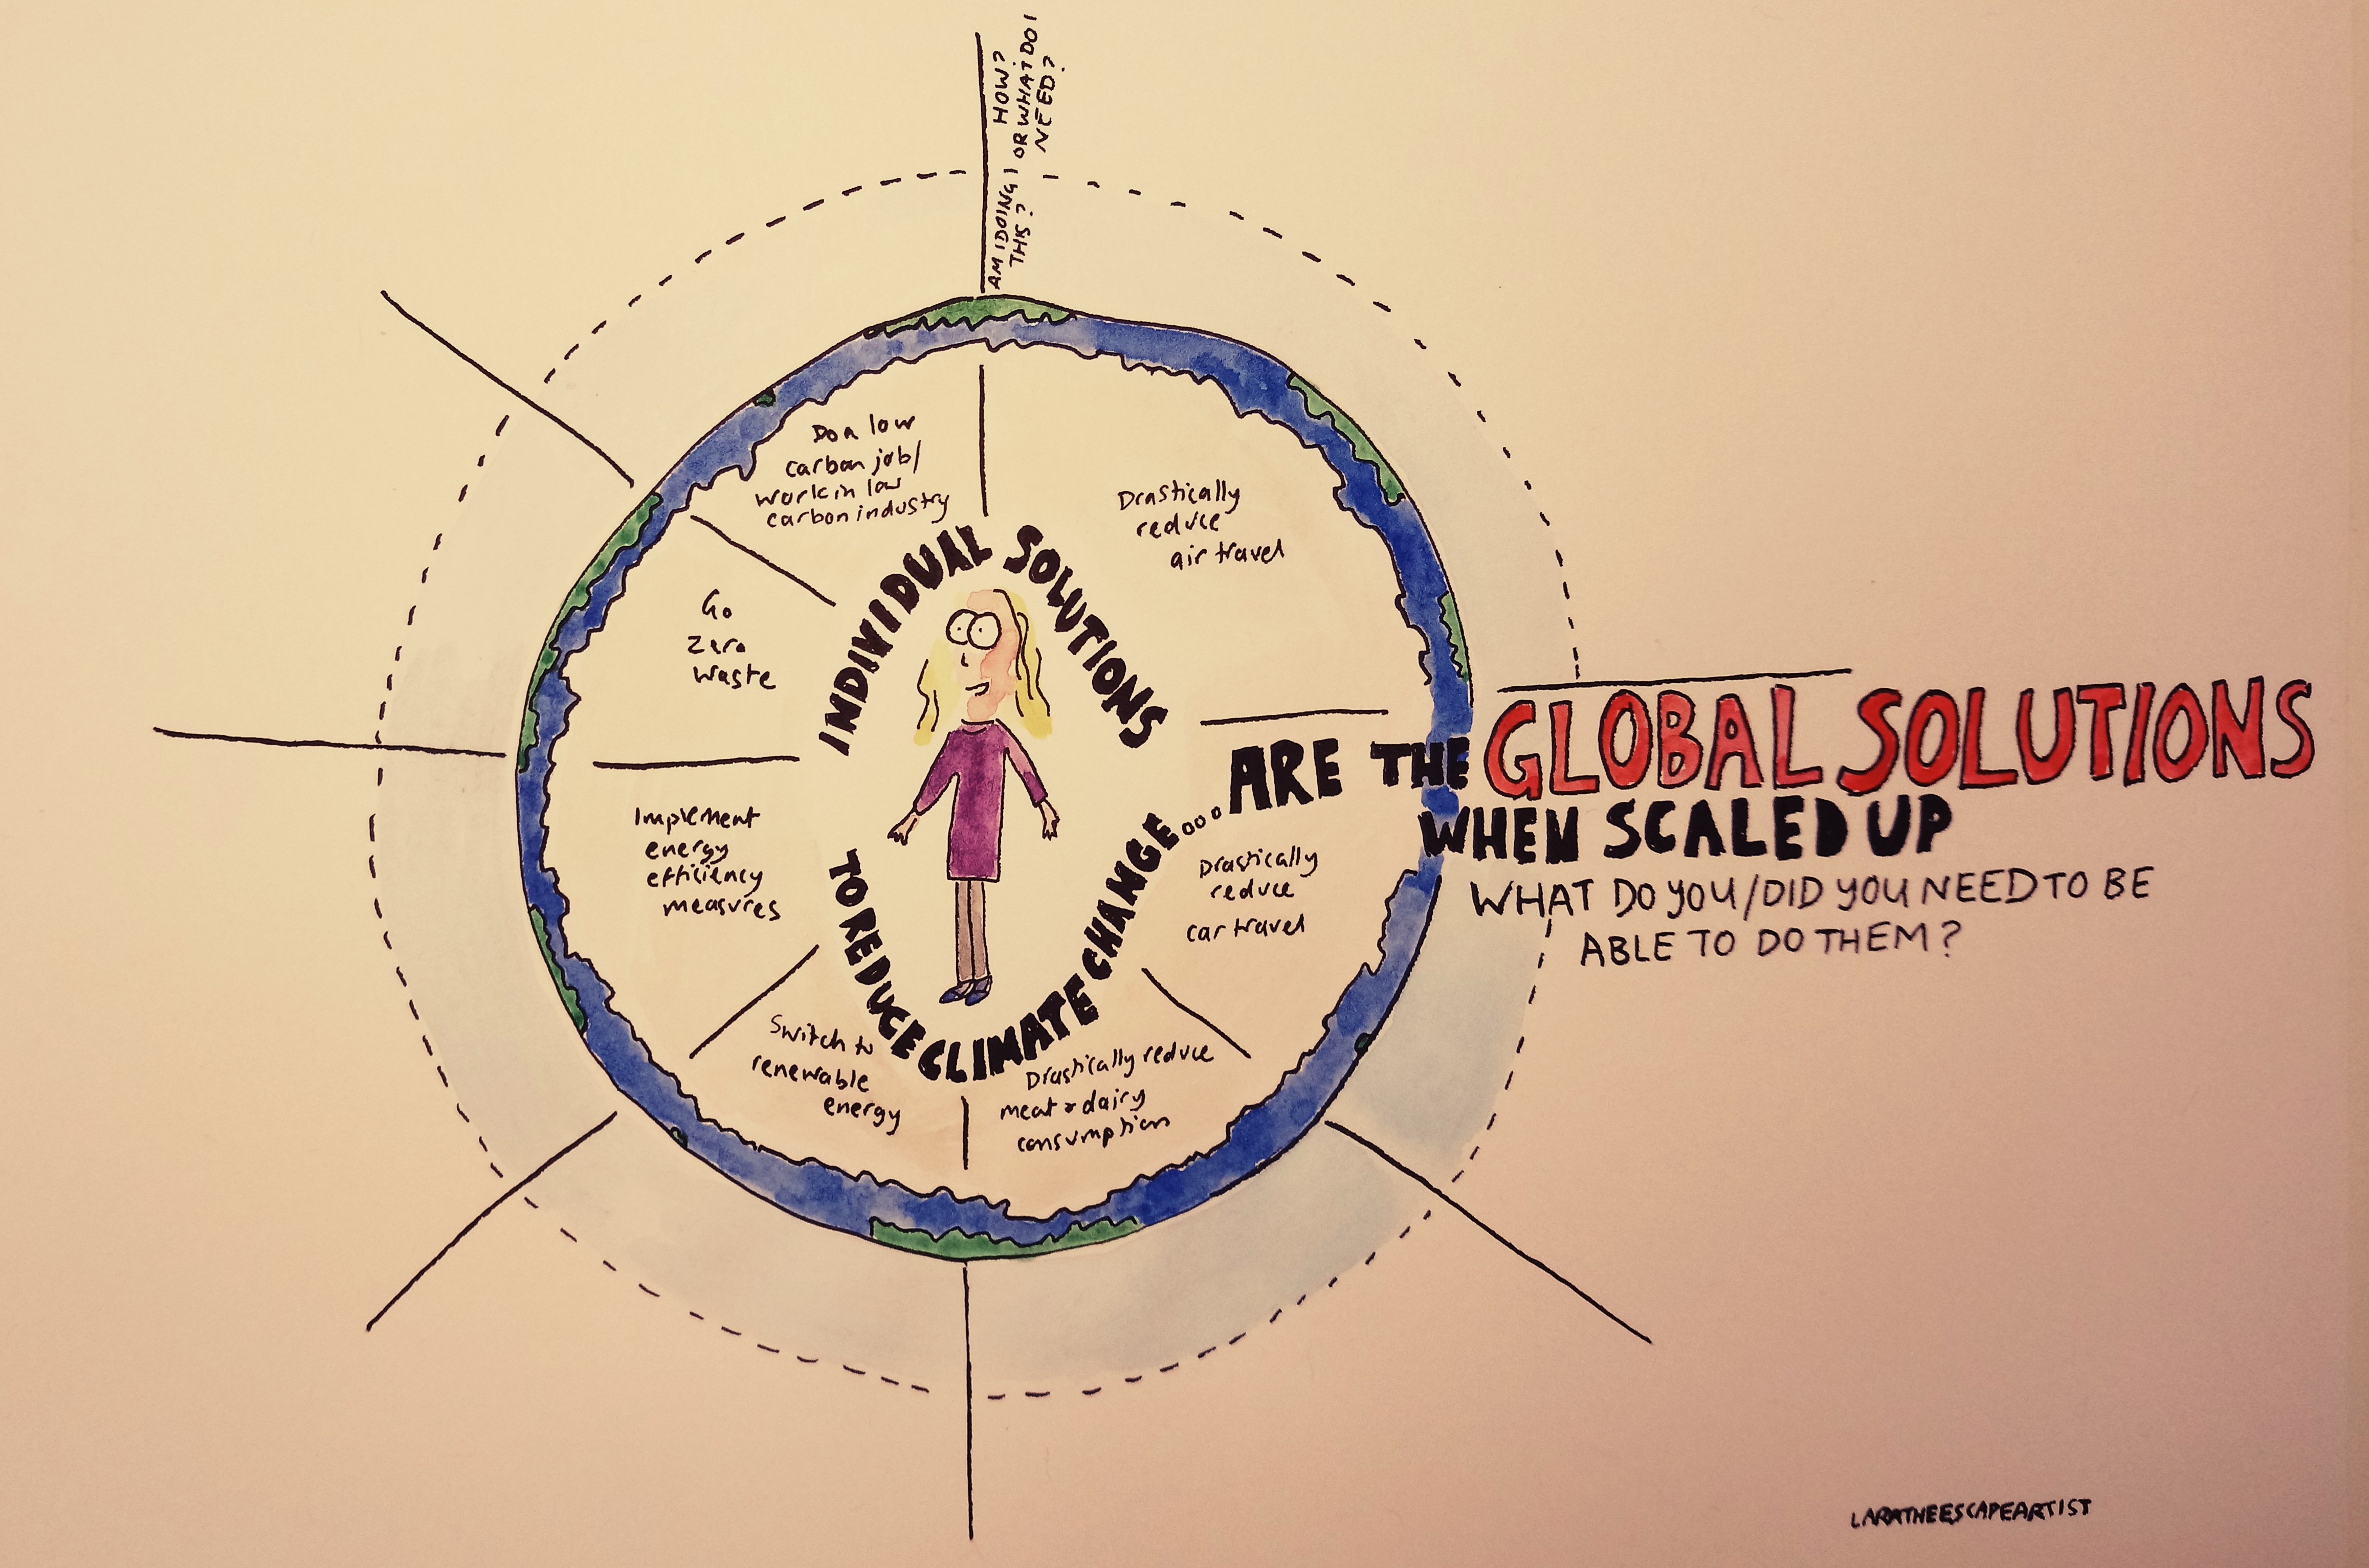 AM I DOING
THIS?
HOW?
OR WHAT DO I
NEED?
INDIVIDUAL SOLUTIONS
TO REDUCE CLIMATE CHANGE...
...ARE THE GLOBAL SOLUTIONS
WHEN SCALED UP
WHAT DO YOU/DID YOU NEED TO BE
ABLE TO DO THEM?
Drastically
reduce
air travel
Drastically
reduce
car travel
Drastically reduce
meat & dairy
consumption
Switch to
renewable
energy
Implement
energy
efficiency
measures
Go
Zero
Waste
Do a low
carbon job/
work in low
carbon industry
LARATHEESCAPEARTIST